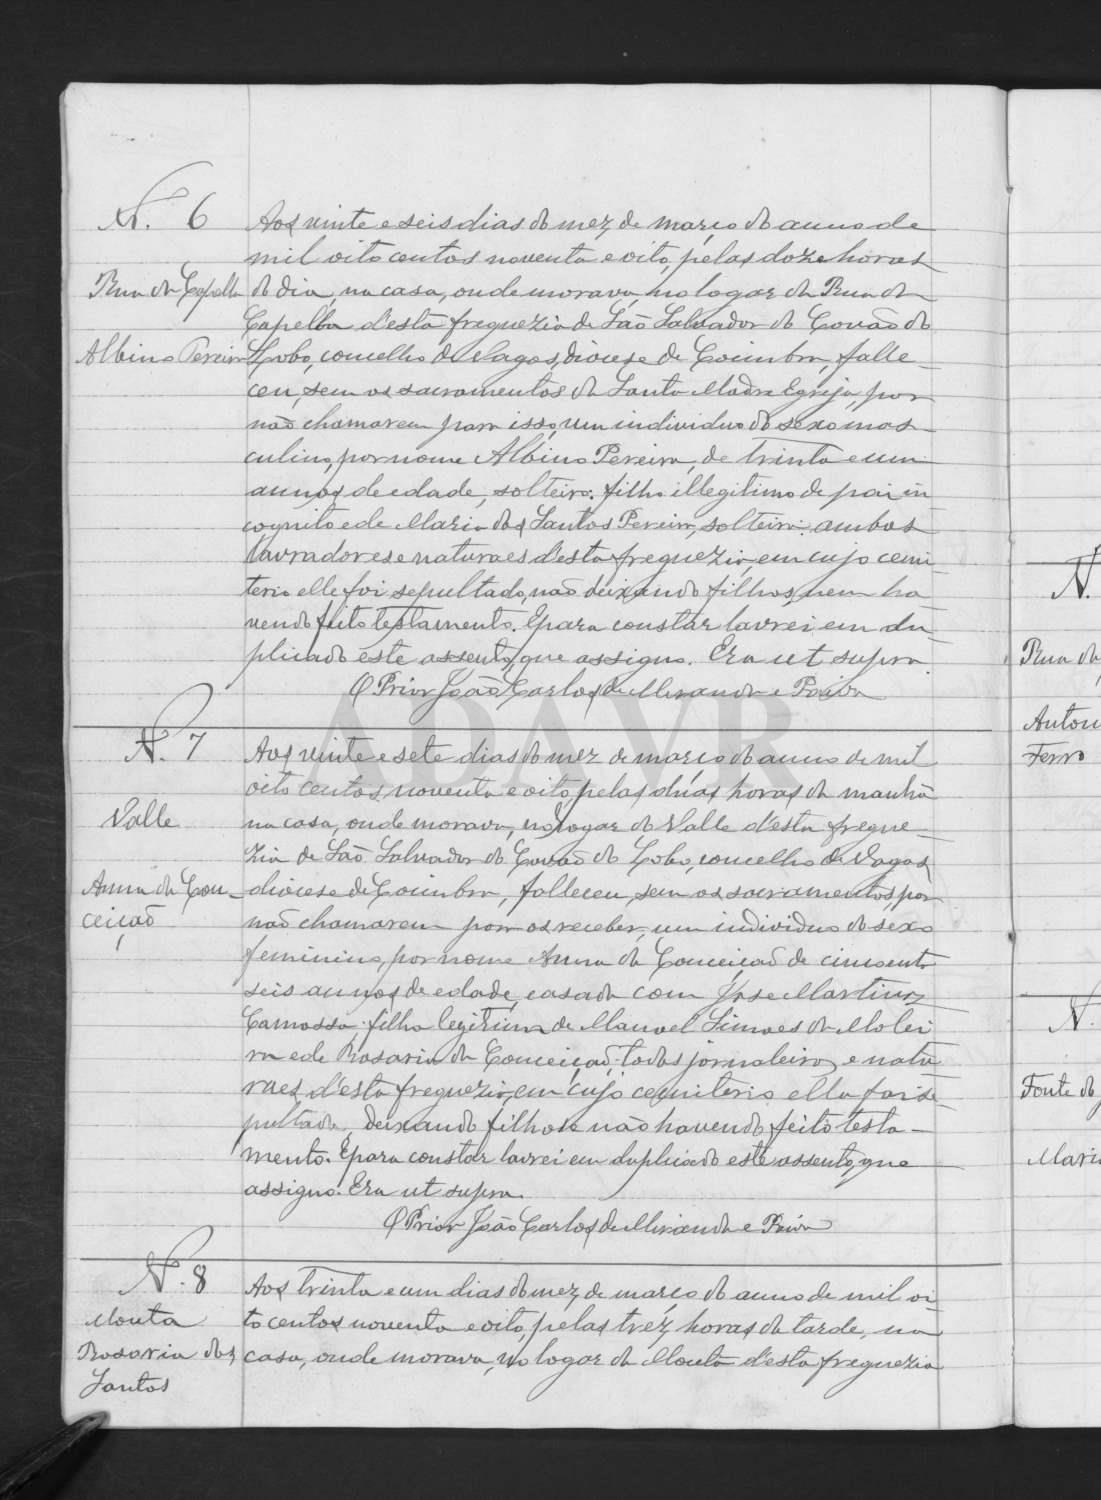 N. 6
Rua da Capella
Albino Pereira
Aos vinte e seis dias do mez de março do anno de
mil oito centos noventa e oito, pelas doze horas
do dia, na casa, onde morava, no logar da Rua da
Capella d'esta freguezia de São Salvador do Covão do
Lobo, concelho de Vagos, diocese de Coimbra, falle-
ceu, sem os sacramentos da Santa Madre Egreja, por
não chamarem para isso, um individuo do sexo mas-
culino, por nome Albino Pereira, de trinta e um
annos de edade, solteiro, filho illegitimo de pai in
cognito e de Maria dos Santos Pereira, solteira: ambos
lavradores e naturaes d'esta freguezia, em cujo cemi-
terio elle foi sepultado, não deixando filhos, nem ha
vendo feito testamento. E para constar lavrei em du-
plicado este assento, que assigno. Era ut supra.
O Prior João Carlos de Miranda e Paiva
N. 7
Valle
Anna da Con-
ceição
Aos vinte e sete dias do mez de março do anno de mil
oito centos noventa e oito, pelas duas horas da manhã
na casa, onde morava, no logar do Valle d'esta fregue-
zia de São Salvador do Covão do Lobo, concelho de Vagos
diocese de Coimbra, falleceu, sem os sacramentos, por
não chamarem para os receber, um individuo do sexo
feminino, por nome Anna da Conceição de cincoenta
seis annos de edade, casada com José Martins
Camossa, filha legitima de Manoel Simoes da Molei
ra e de Rosaria da Conceição, todos jornaleiros, e natu
raes d'esta freguezia, em cujo cemiterio ella foi se-
pultada, deixando filhos e não havendo feito testa-
mento. E para constar lavrei em duplicado este assento, que
assigno. Era ut supra.
O Prior João Carlos de Miranda e Paiva
N. 8
Mouta
Rosaria dos
Santos
Aos trinta e um dias do mez de março do anno de mil oi-
to centos noventa e oito, pelas trez horas da tarde, na
casa, onde morava, no logar da Mouta d'esta freguezia
N.
Rua da
Anton
Ferro
N.
Fonte do
Mari
ADAVR